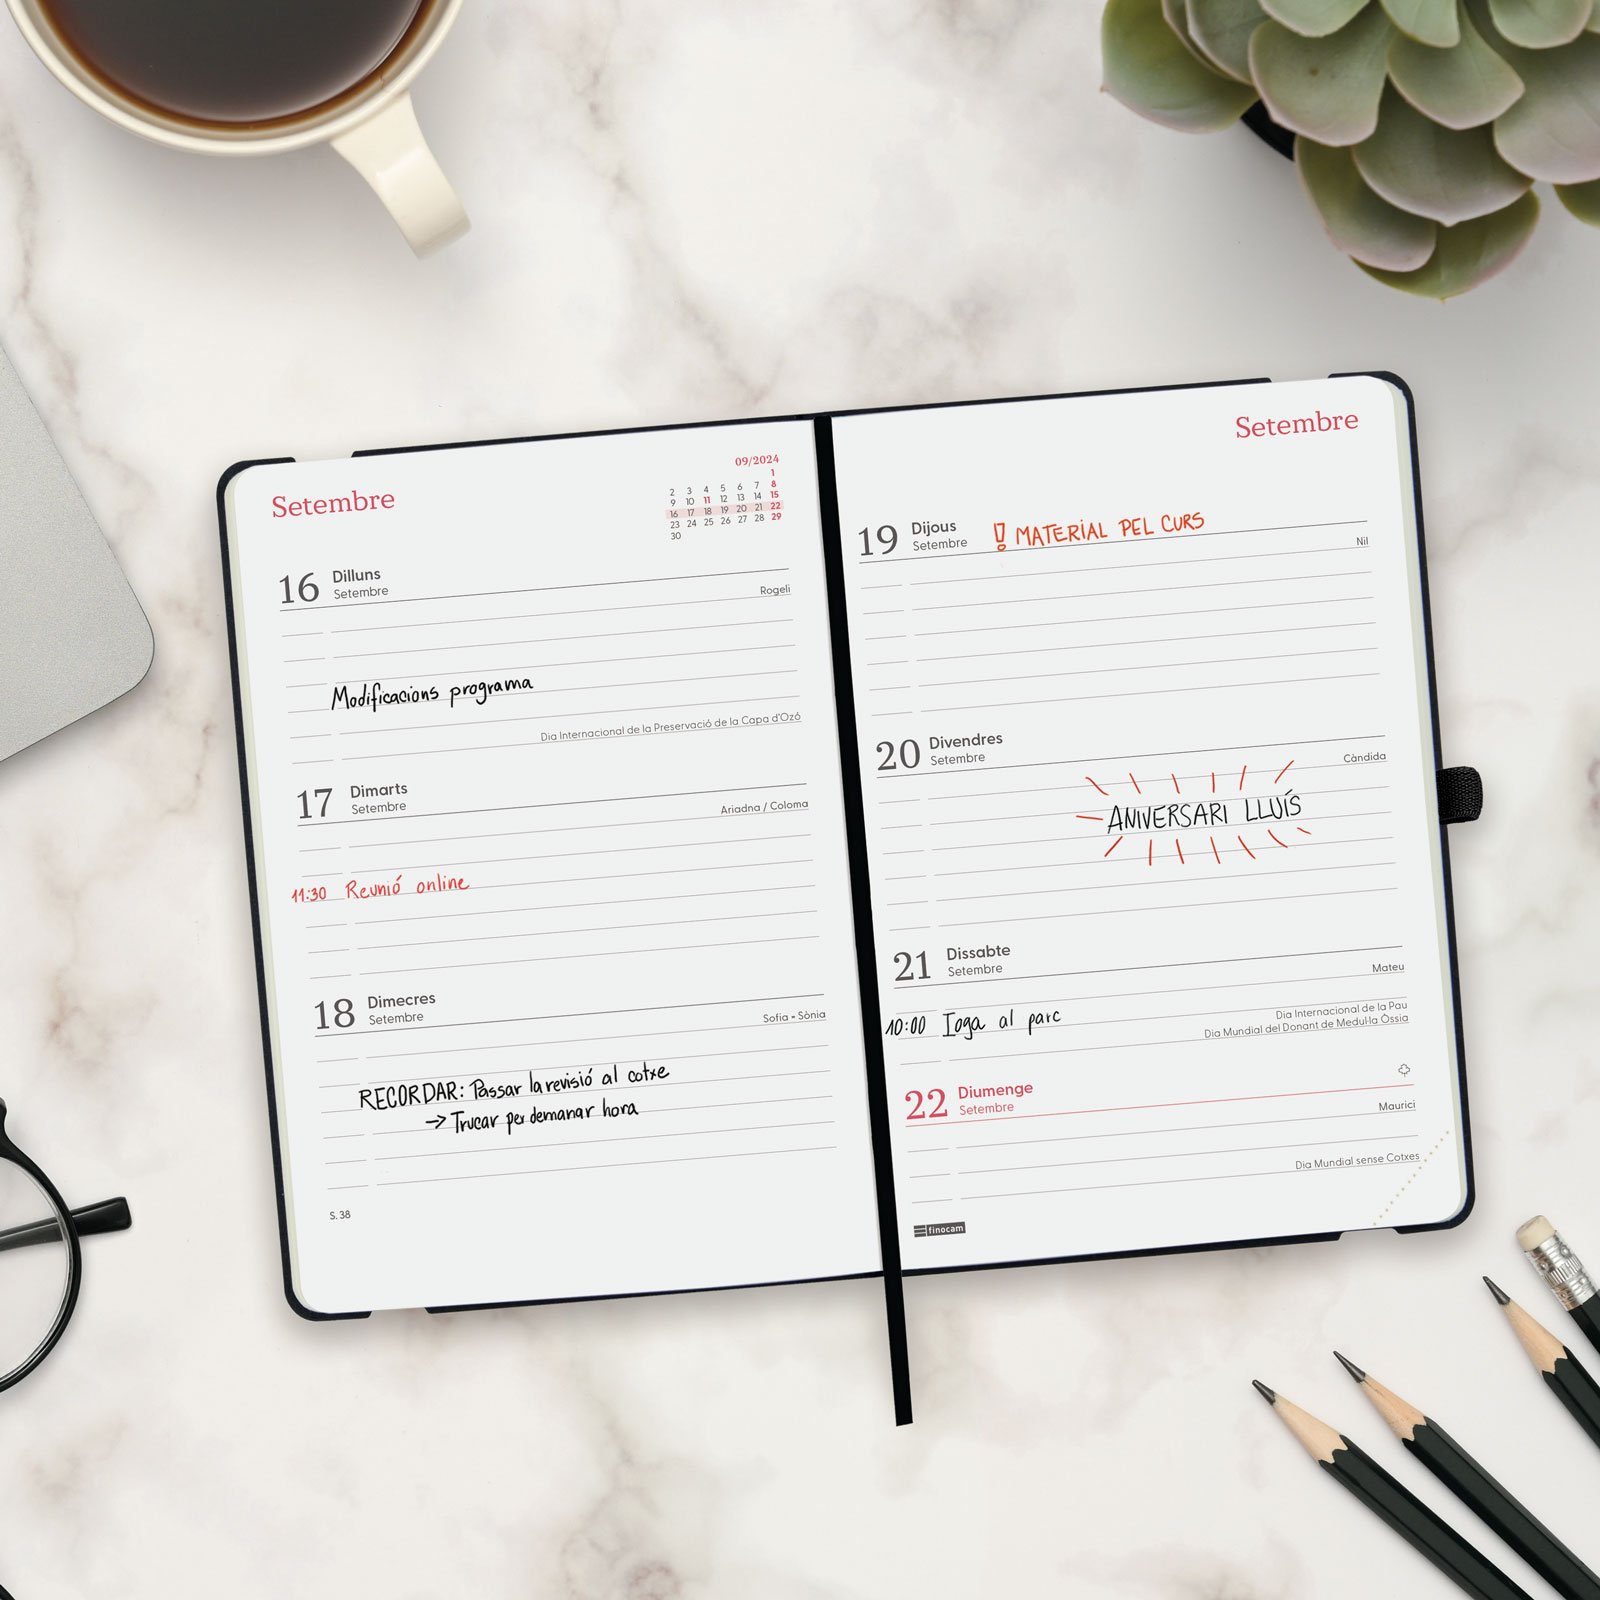 Setembre
09/2024
1
2 3 4 5 6 7 8
9 10 11 12 13 14 15
16 17 18 19 20 21 22
23 24 25 26 27 28 29
30
16 Dilluns
Setembre
Rogeli
Modificacions programa
Dia Internacional de la Preservació de la Capa d'Ozó
17 Dimarts
Setembre
Ariadna / Coloma
11:30 Reunió online
18 Dimecres
Setembre
Sofia - Sònia
RECORDAR: Passar la revisió al cotxe
→ Trucar per demanar hora
S. 38
Setembre
19 Dijous ! MATERIAL PEL CURS
Setembre
Nil
20 Divendres
Setembre
Càndida
ANIVERSARI LLUÍS
21 Dissabte
Setembre
Mateu
10:00 Ioga al parc
Dia Internacional de la Pau
Dia Mundial del Donant de Medul·la Òssia
22 Diumenge
Setembre
Maurici
Dia Mundial sense Cotxes
finocam